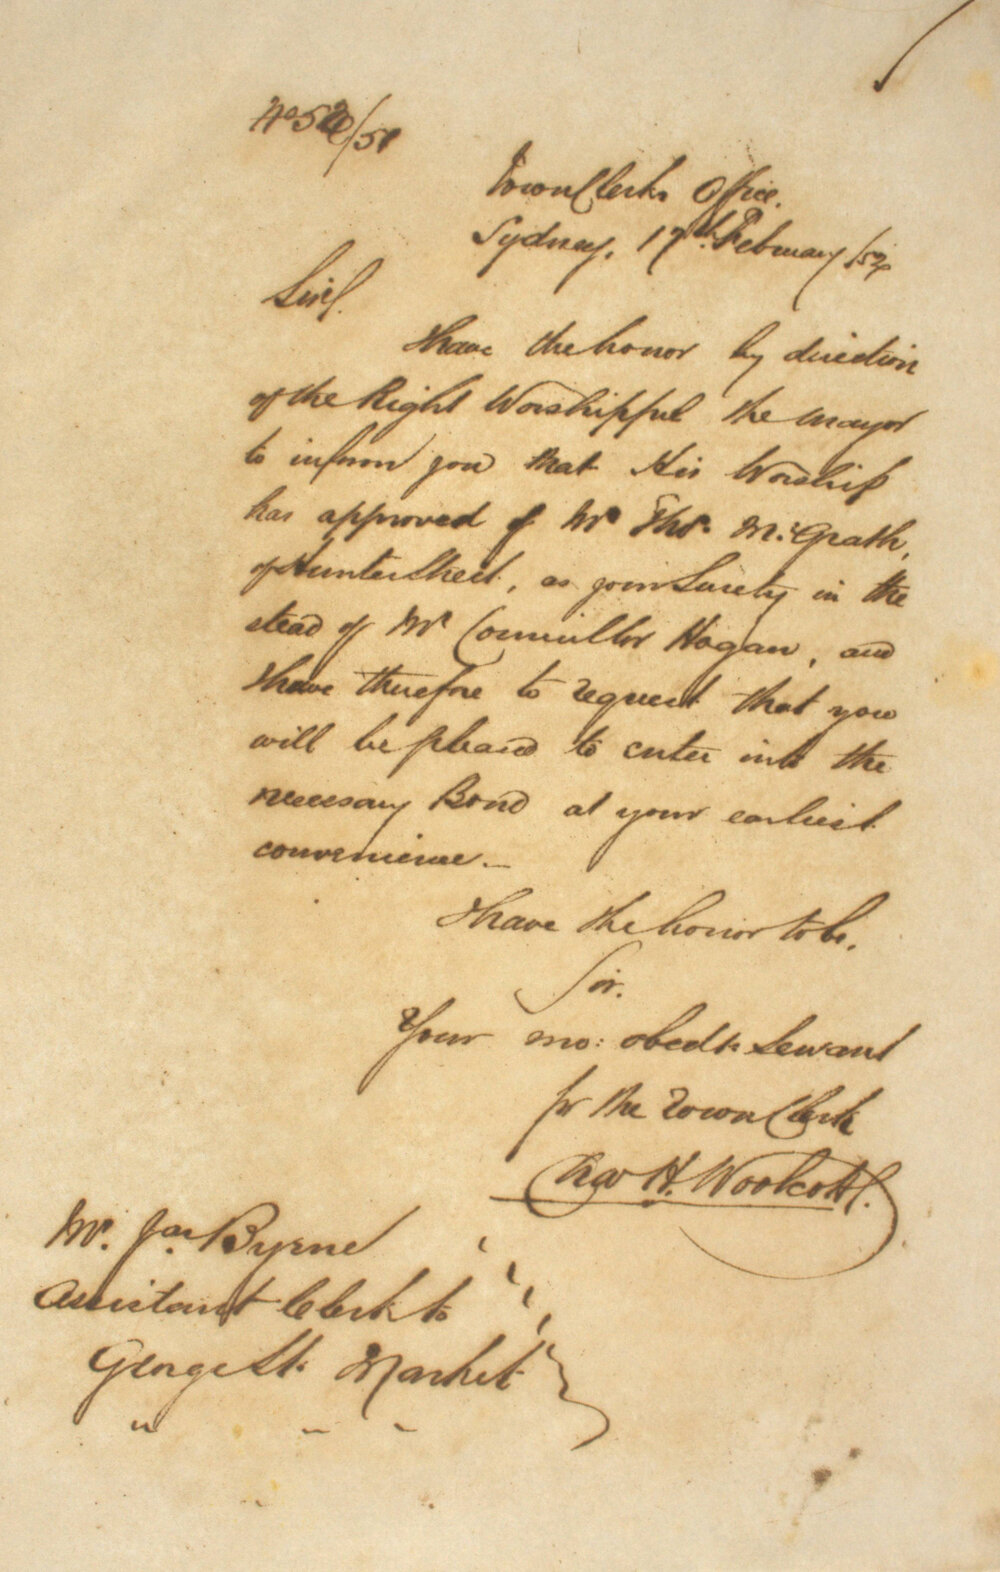 Town Clerks Office.
Sydney, 17th February /52
Sir,
I have the honor by direction
of the Right Worshipful the Mayor
to inform you that His Worship
has approved of Mr Thos. McGrath,
of Hunter Street, as your Surety in the
stead of Mr Councillor Hogan, and
I have therefore to request that you
will be pleased to enter into the
necessary Bond at your earliest
convenience._
I have the honor to be,
Sir.
Your mo: obedt. Servant
for the Town Clerk
Chas H. Woolcott.
Mr. Jas Byrne
Assistant Clerk to
George St. Market